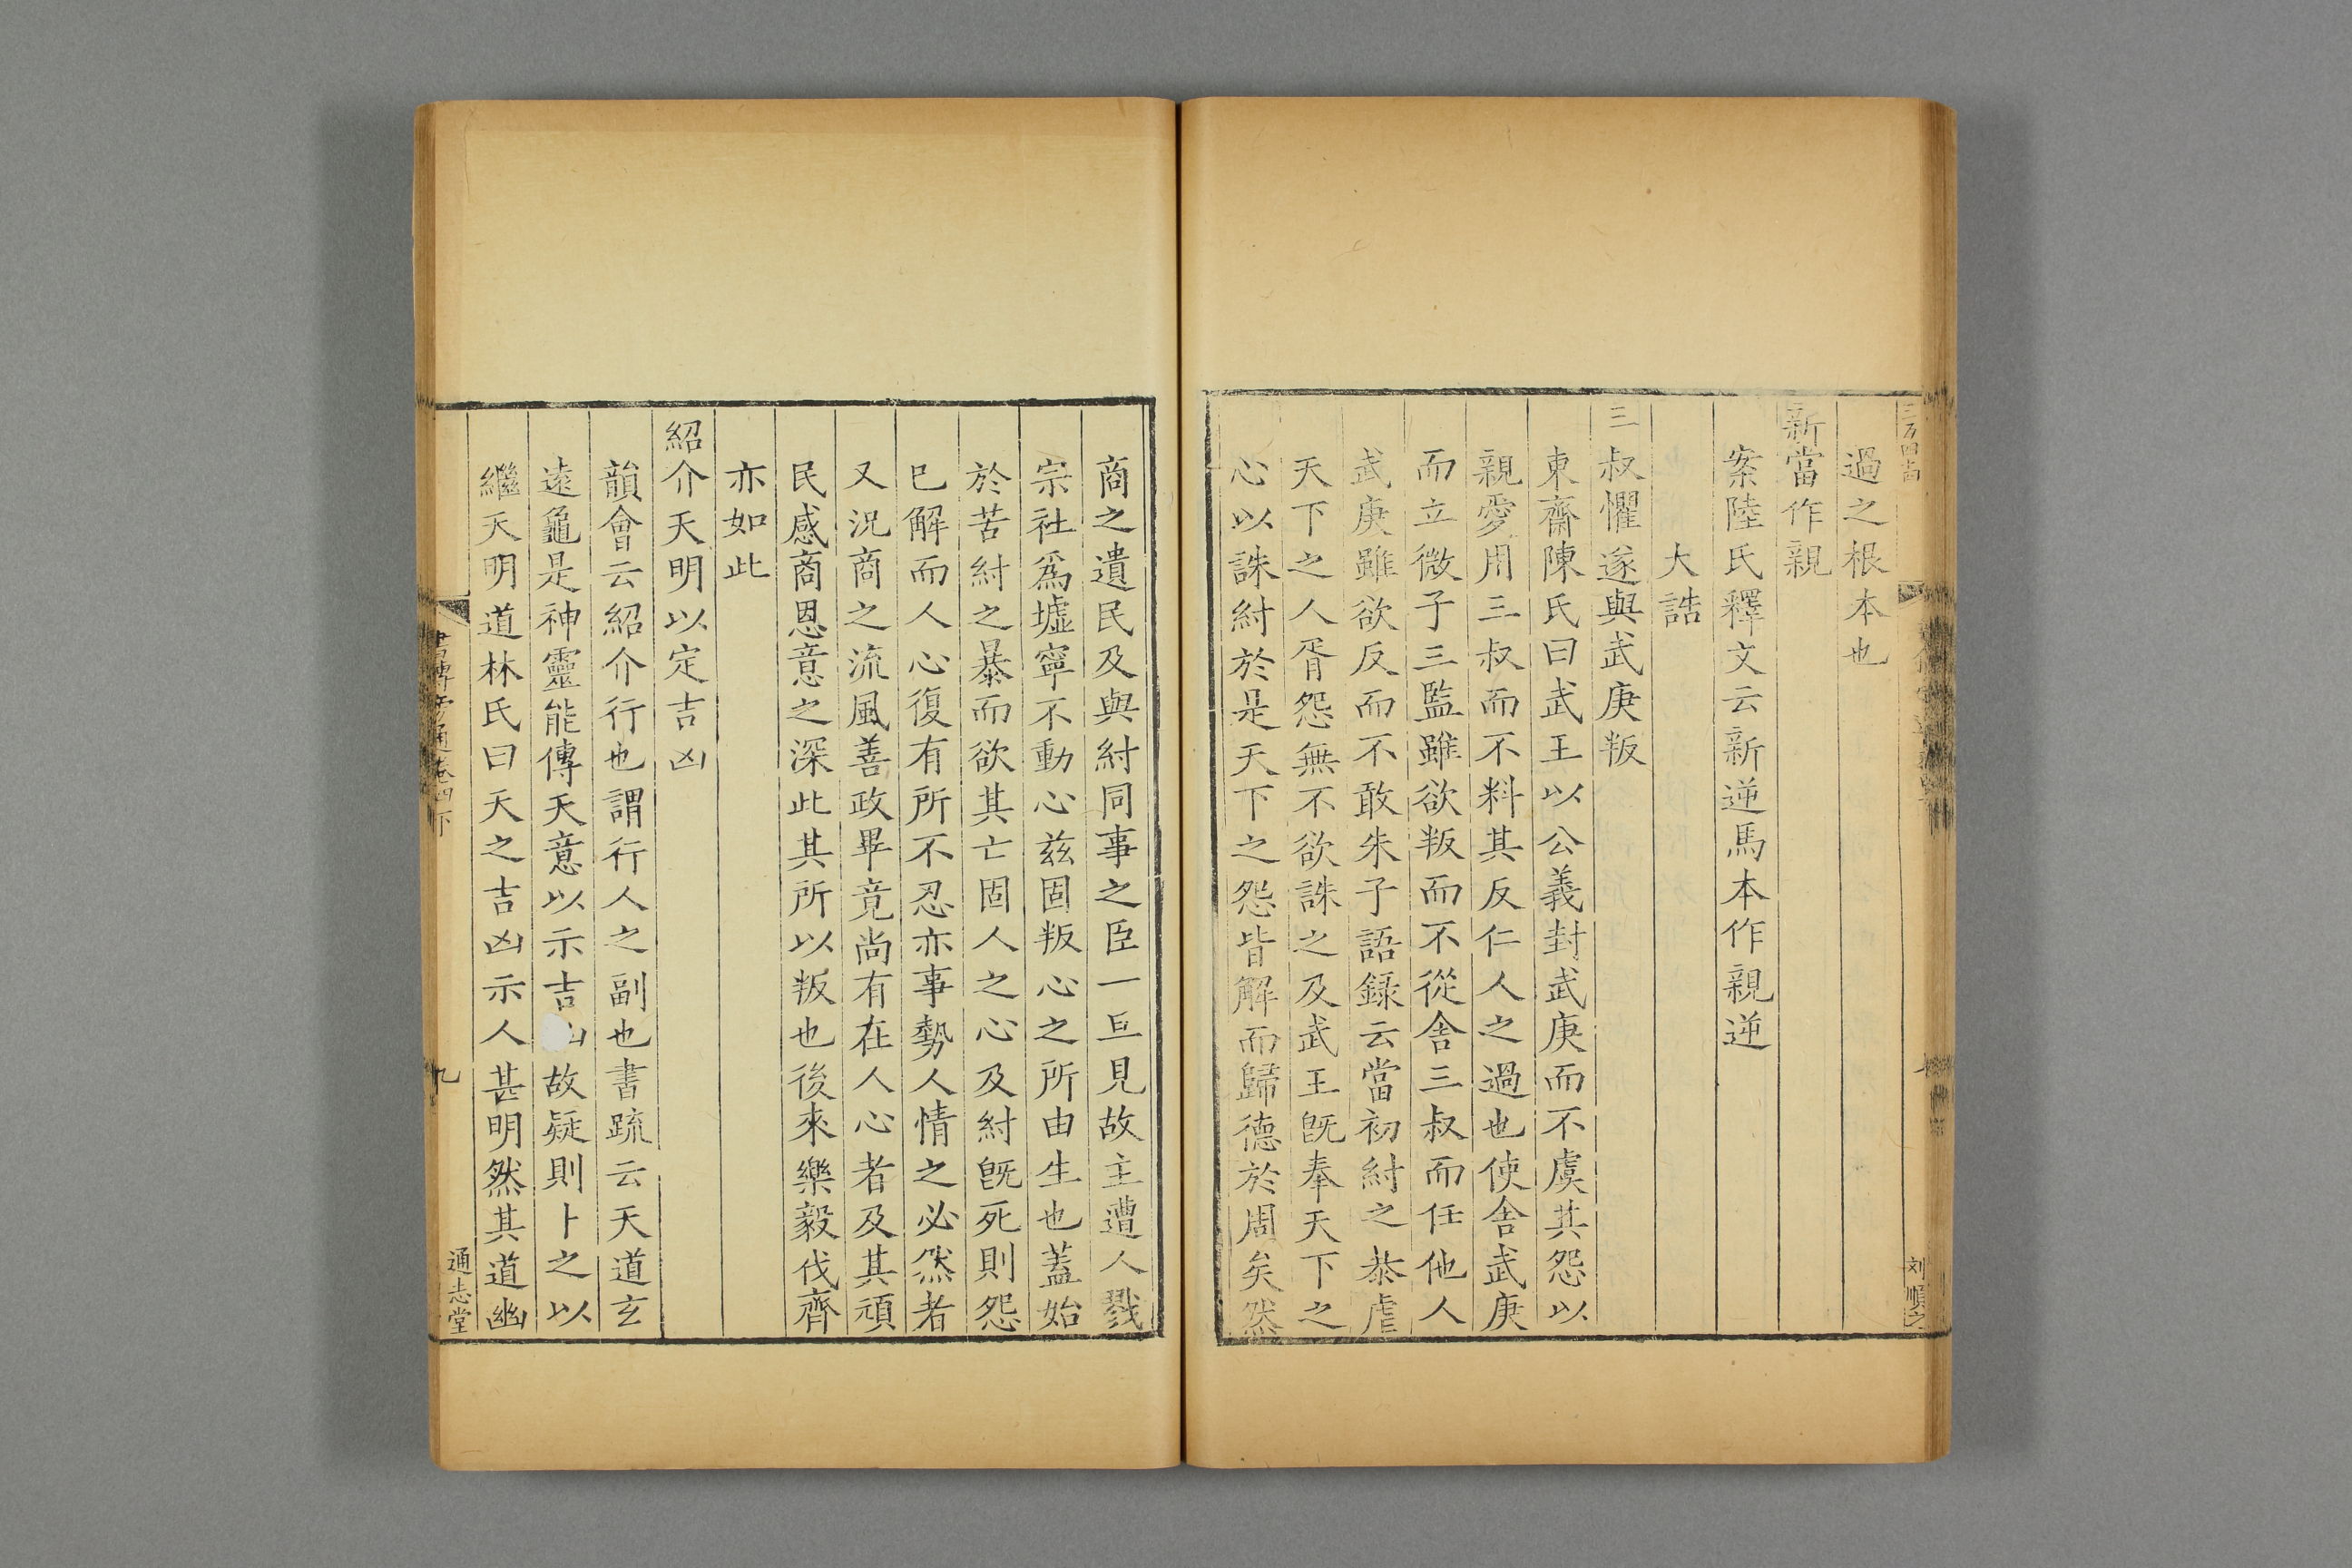 過之根本也
新當作親
案陸氏釋文云新逆馬本作親逆
大誥
三叔懼遂與武庚叛
東齋陳氏曰武王以公義封武庚而不虞其怨以
親愛用三叔而不料其反仁人之過也使舍武庚
而立微子三監雖欲叛而不從舍三叔而任他人
武庚雖欲反而不敢朱子語録云當初紂之㳟虐
天下之人胥怨無不欲誅之及武王旣奉天下之
心以誅紂於是天下之怨皆解而歸德於周矣然
刘順之
商之遺民及與紂同事之臣一旦見故主遭人戮
宗社爲墟寧不動心兹固叛心之所由生也蓋始
於苦紂之暴而欲其亡固人之心及紂旣死則怨
已解而人心復有所不忍亦事勢人情之必然者
又況商之流風善政畢竟尚有在人心者及其頑
民感商恩意之深此其所以叛也後來樂毅伐齊
亦如此
紹介天明以定吉凶
韻會云紹介行也謂行人之副也書疏云天道玄
遠龜是神靈能傳天意以示吉凶故疑則卜之以
繼天明道林氏曰天之吉凶示人甚明然其道幽
書傳旁通卷四下
九
通志堂